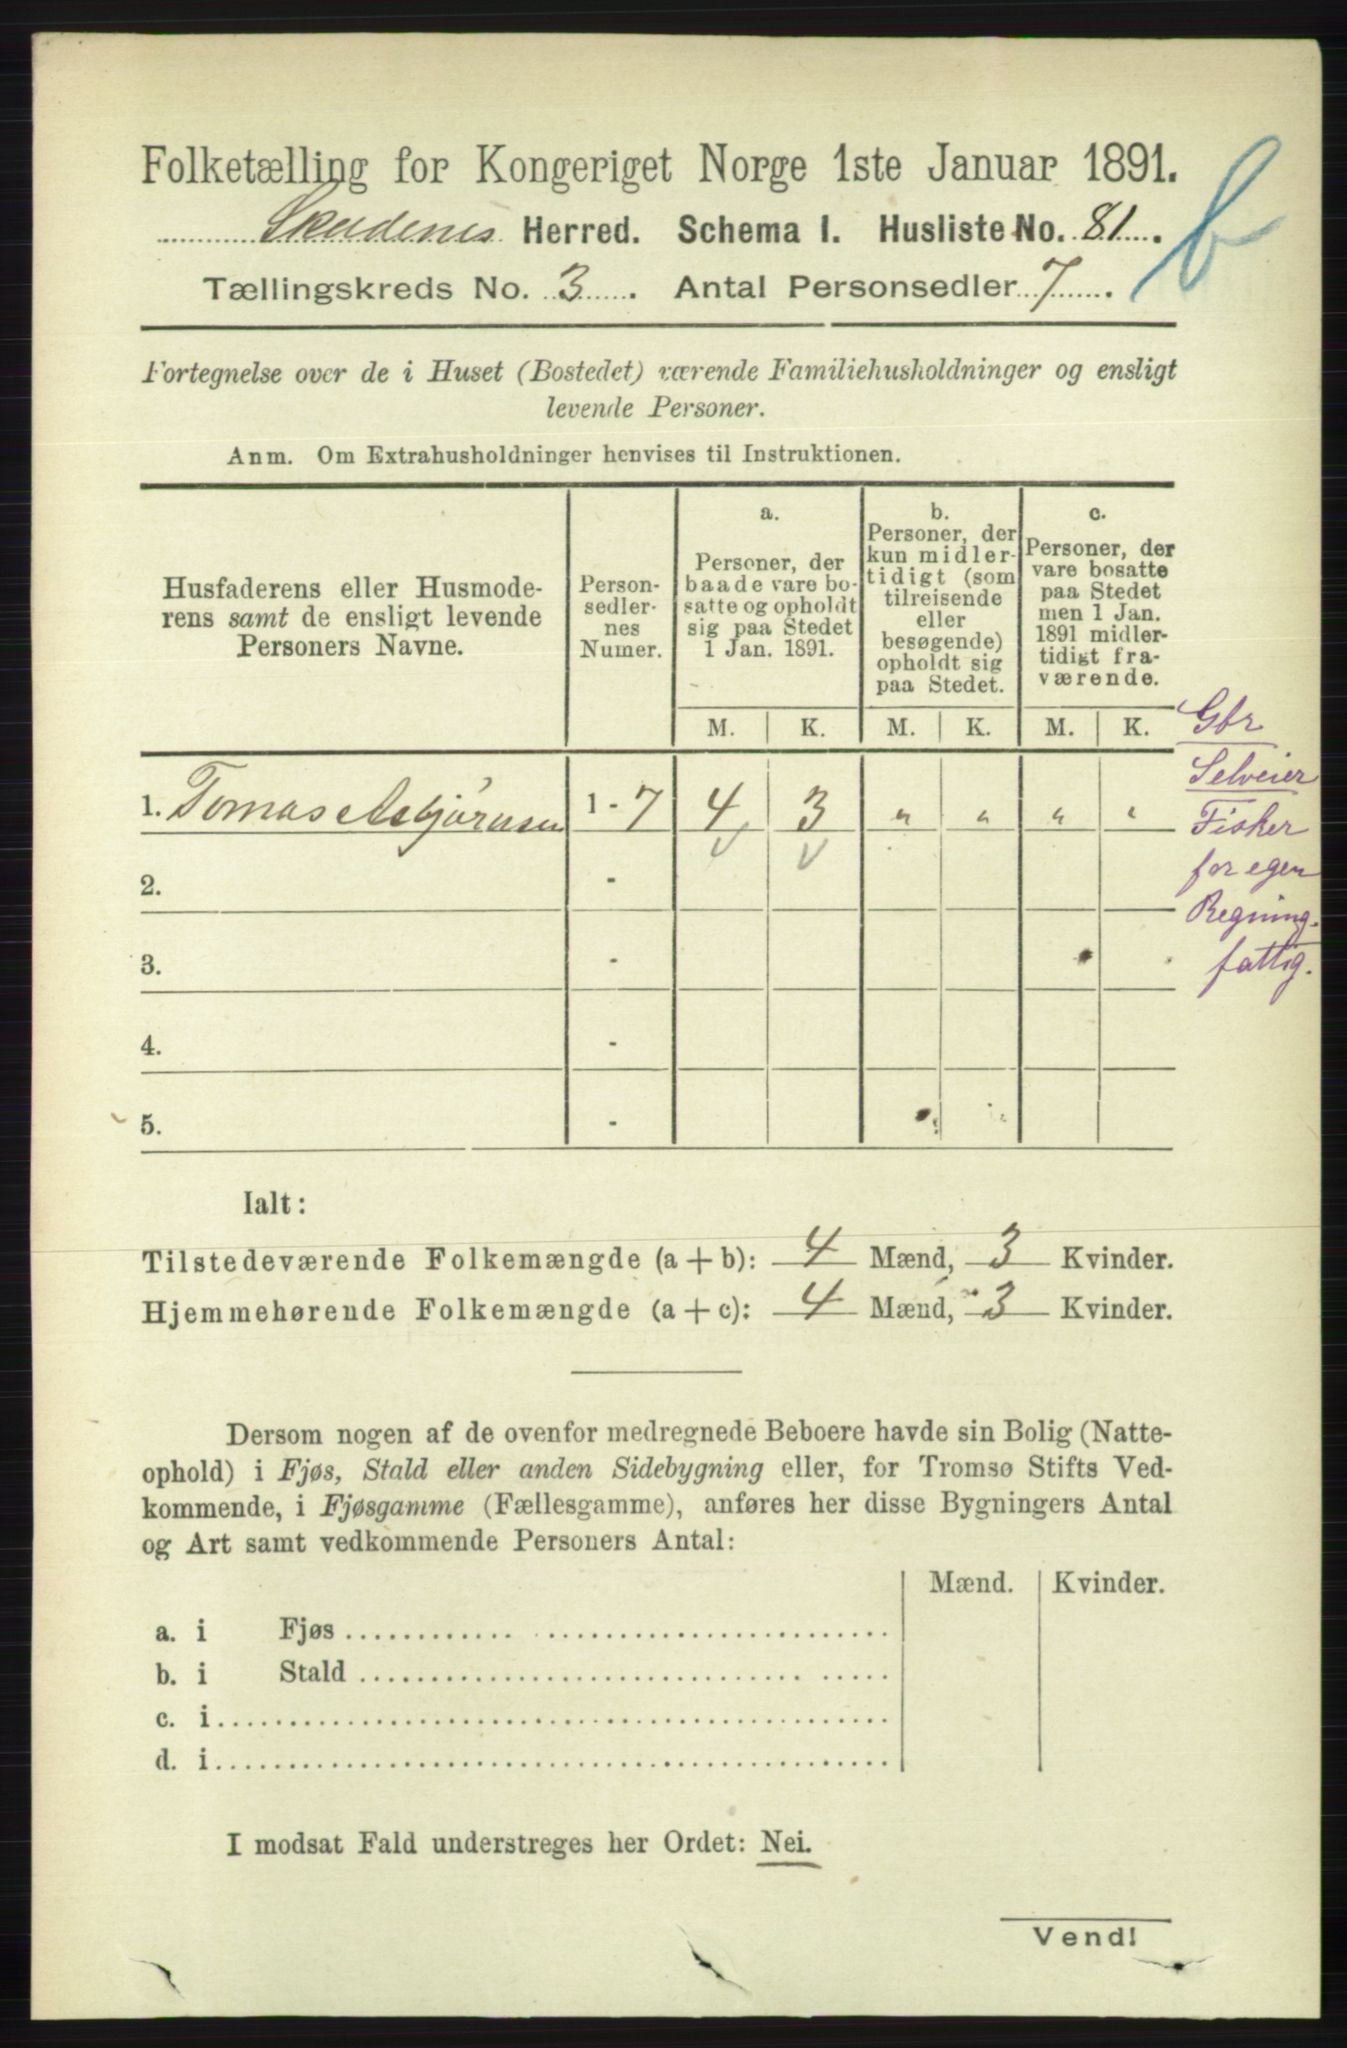 Folketælling for Kongeriget Norge 1ste Januar 1891.
Skudenes Herred. Schema I. Husliste No. 81.
Tællingskreds No. 3. Antal Personsedler 7.
b
Fortegnelse over de i Huset (Bostedet) værende Familiehusholdninger og ensligt
levende Personer.
Anm. Om Extrahusholdninger henvises til Instruktionen.
Husfaderens eller Husmode-
rens samt de ensligt levende
Personers Navne.
Person-
sedler-
nes
Numer.
a.
Personer, der
baade vare bo-
satte og opholdt
sig paa Stedet
1 Jan. 1891.
b.
Personer, der
kun midler-
tidigt (som
tilreisende
eller
besøgende)
opholdt sig
paa Stedet.
c.
Personer, der
vare bosatte
paa Stedet
men 1 Jan.
1891 midler-
tidigt fra-
værende.
M. K. M. K. M. K.
1. Tomas Asbjørnsen 1 - 7 4 3 " " " "
2. -
3. -
4. -
5. -
Gbr
Selveier
Fisker
for egen
Regning.
fattig.
Ialt:
Tilstedeværende Folkemængde (a + b): 4 Mænd, 3 Kvinder.
Hjemmehørende Folkemængde (a + c): 4 Mænd, 3 Kvinder.
Dersom nogen af de ovenfor medregnede Beboere havde sin Bolig (Natte-
ophold) i Fjøs, Stald eller anden Sidebygning eller, for Tromsø Stifts Ved-
kommende, i Fjøsgamme (Fællesgamme), anføres her disse Bygningers Antal
og Art samt vedkommende Personers Antal:
Mænd. Kvinder.
a. i Fjøs
b. i Stald
c. i
d. i
I modsat Fald understreges her Ordet: Nei.
Vend!